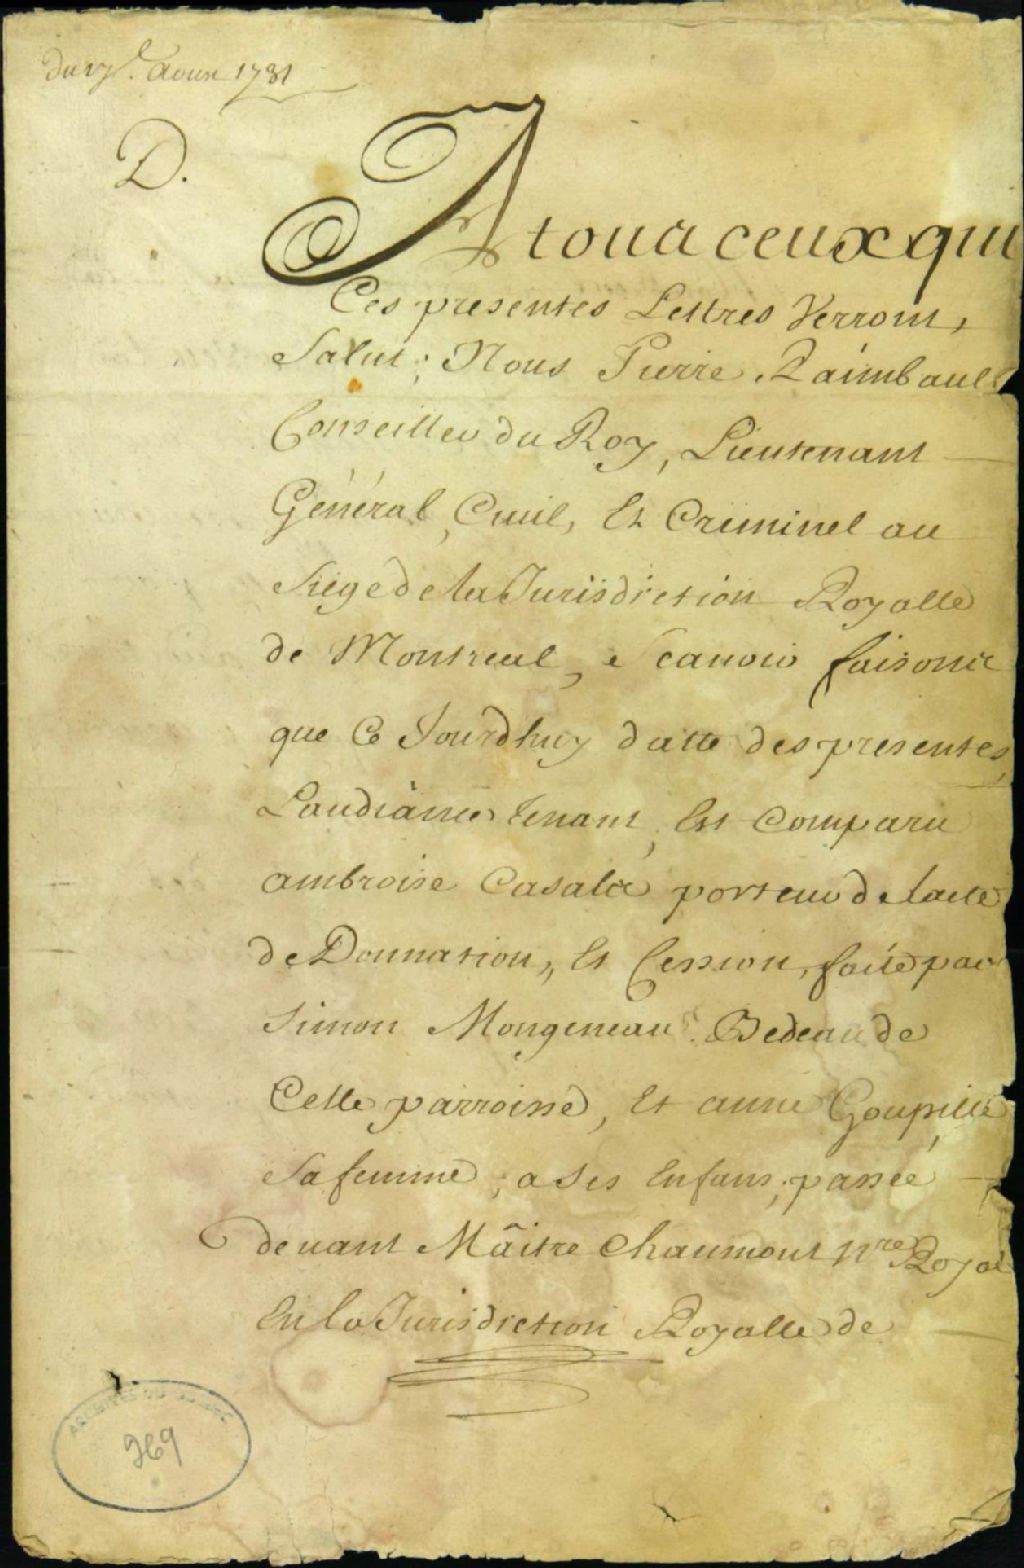 aoust 1731
D.
A tous ceux qui
Ces presentes Lettres Verront,
Salut; Nous Pierre Raimbault
Conseiller du Roy, Lieutenant
Général, Civil, Et Criminel au
Siege de la Jurisdiction Royalle
de Montreal, Scavoir faisons
que Ce Jourdhuy datte des presentes,
Laudiance tenant, Est Comparu
ambroise Casala porteur de lacte
de Donnation, Et Cession, faite par
Simon Mongeneau Bedeau de
Cette parroisse, Et anne Goupille
Sa femme, a Ses Enfans, passée
devant Mâitre Chaumont nre Royal
En la Jurisdiction Royalle de
ARCHIVES DU QUEBEC
969